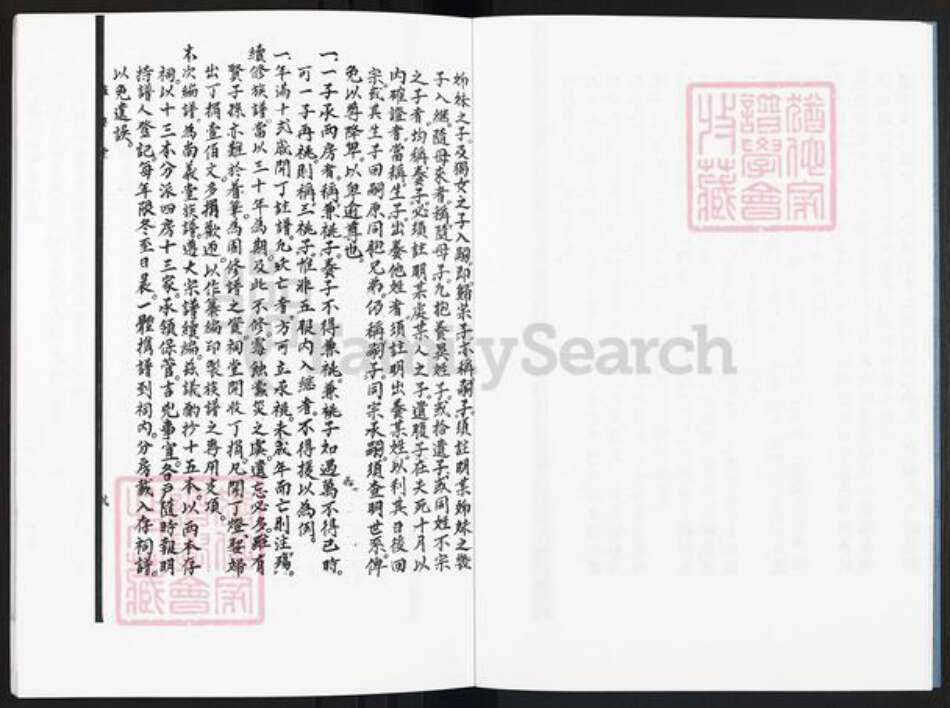 姊妹之子。及獨女之子入嗣。即歸宗子。亦稱嗣子。須註明某姊妹之幾
子入繼。隨母來者。稱隨母子。凡抱養異姓子。或拾遺子。或同姓不宗
之子者。均稱養子。必須註明某處某人之子。遺腹子在夫死十月以
內確證者。當稱生子。出養他姓者。須註明出養某姓。以利其日後回
宗。或其生子回嗣。原同胞兄弟。仍稱嗣子。同宗承嗣。須查明世系。俾
免以尊降卑。以卑逾尊也。
一、一子承兩房者。稱兼祧子。養子不得兼祧。兼祧子如遇萬不得已時。
可一子再祧。則稱三祧子。惟非五服內入繼者。不得援以為例。
一、年滿十弍歲開丁註譜。凡妖亡者。方可立承祧。未滿年而亡。則注殤。
續修族譜。當以三十年為期。及此不修。霉蝕蠹災之虞。遺忘必多。雖有
賢子孫。亦難於着筆。為周修譜之資。祠堂開收丁捐。凡開丁燈。娶婦
出丁捐壹佰文。多捐歡迎。以作纂編印製族譜之專用支項。
本次編譜。為尚義堂族譜。遵大宗譜續編。茲議酌抄十五本。以兩本存
祠。以十三本分派四房十三家。承領保管。吉兇事宜。各戶隨時報明
持譜人登記。每年限冬至日晨。一體攜譜到祠內。分房載入存祠譜。
以免遺誤。
猶他家
譜學會
收藏
FamilySearch
猶他家
譜學會
收藏